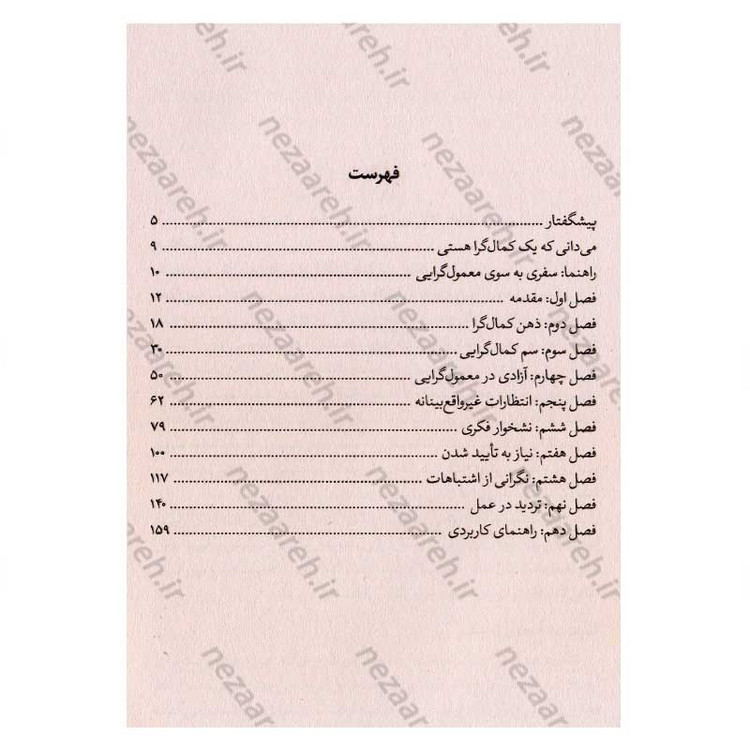 فهرست
پیشگفتار ........ ۵
می‌دانی که یک کمال‌گرا هستی ........ ۹
راهنما: سفری به سوی معمول‌گرایی ........ ۱۰
فصل اول: مقدمه ........ ۱۲
فصل دوم: ذهن کمال‌گرا ........ ۱۸
فصل سوم: سم کمال‌گرایی ........ ۳۰
فصل چهارم: آزادی در معمول‌گرایی ........ ۵۰
فصل پنجم: انتظارات غیرواقع‌بینانه ........ ۶۲
فصل ششم: نشخوار فکری ........ ۷۹
فصل هفتم: نیاز به تأیید شدن ........ ۱۰۰
فصل هشتم: نگرانی از اشتباهات ........ ۱۱۷
فصل نهم: تردید در عمل ........ ۱۴۰
فصل دهم: راهنمای کاربردی ........ ۱۵۹
nezaareh.ir